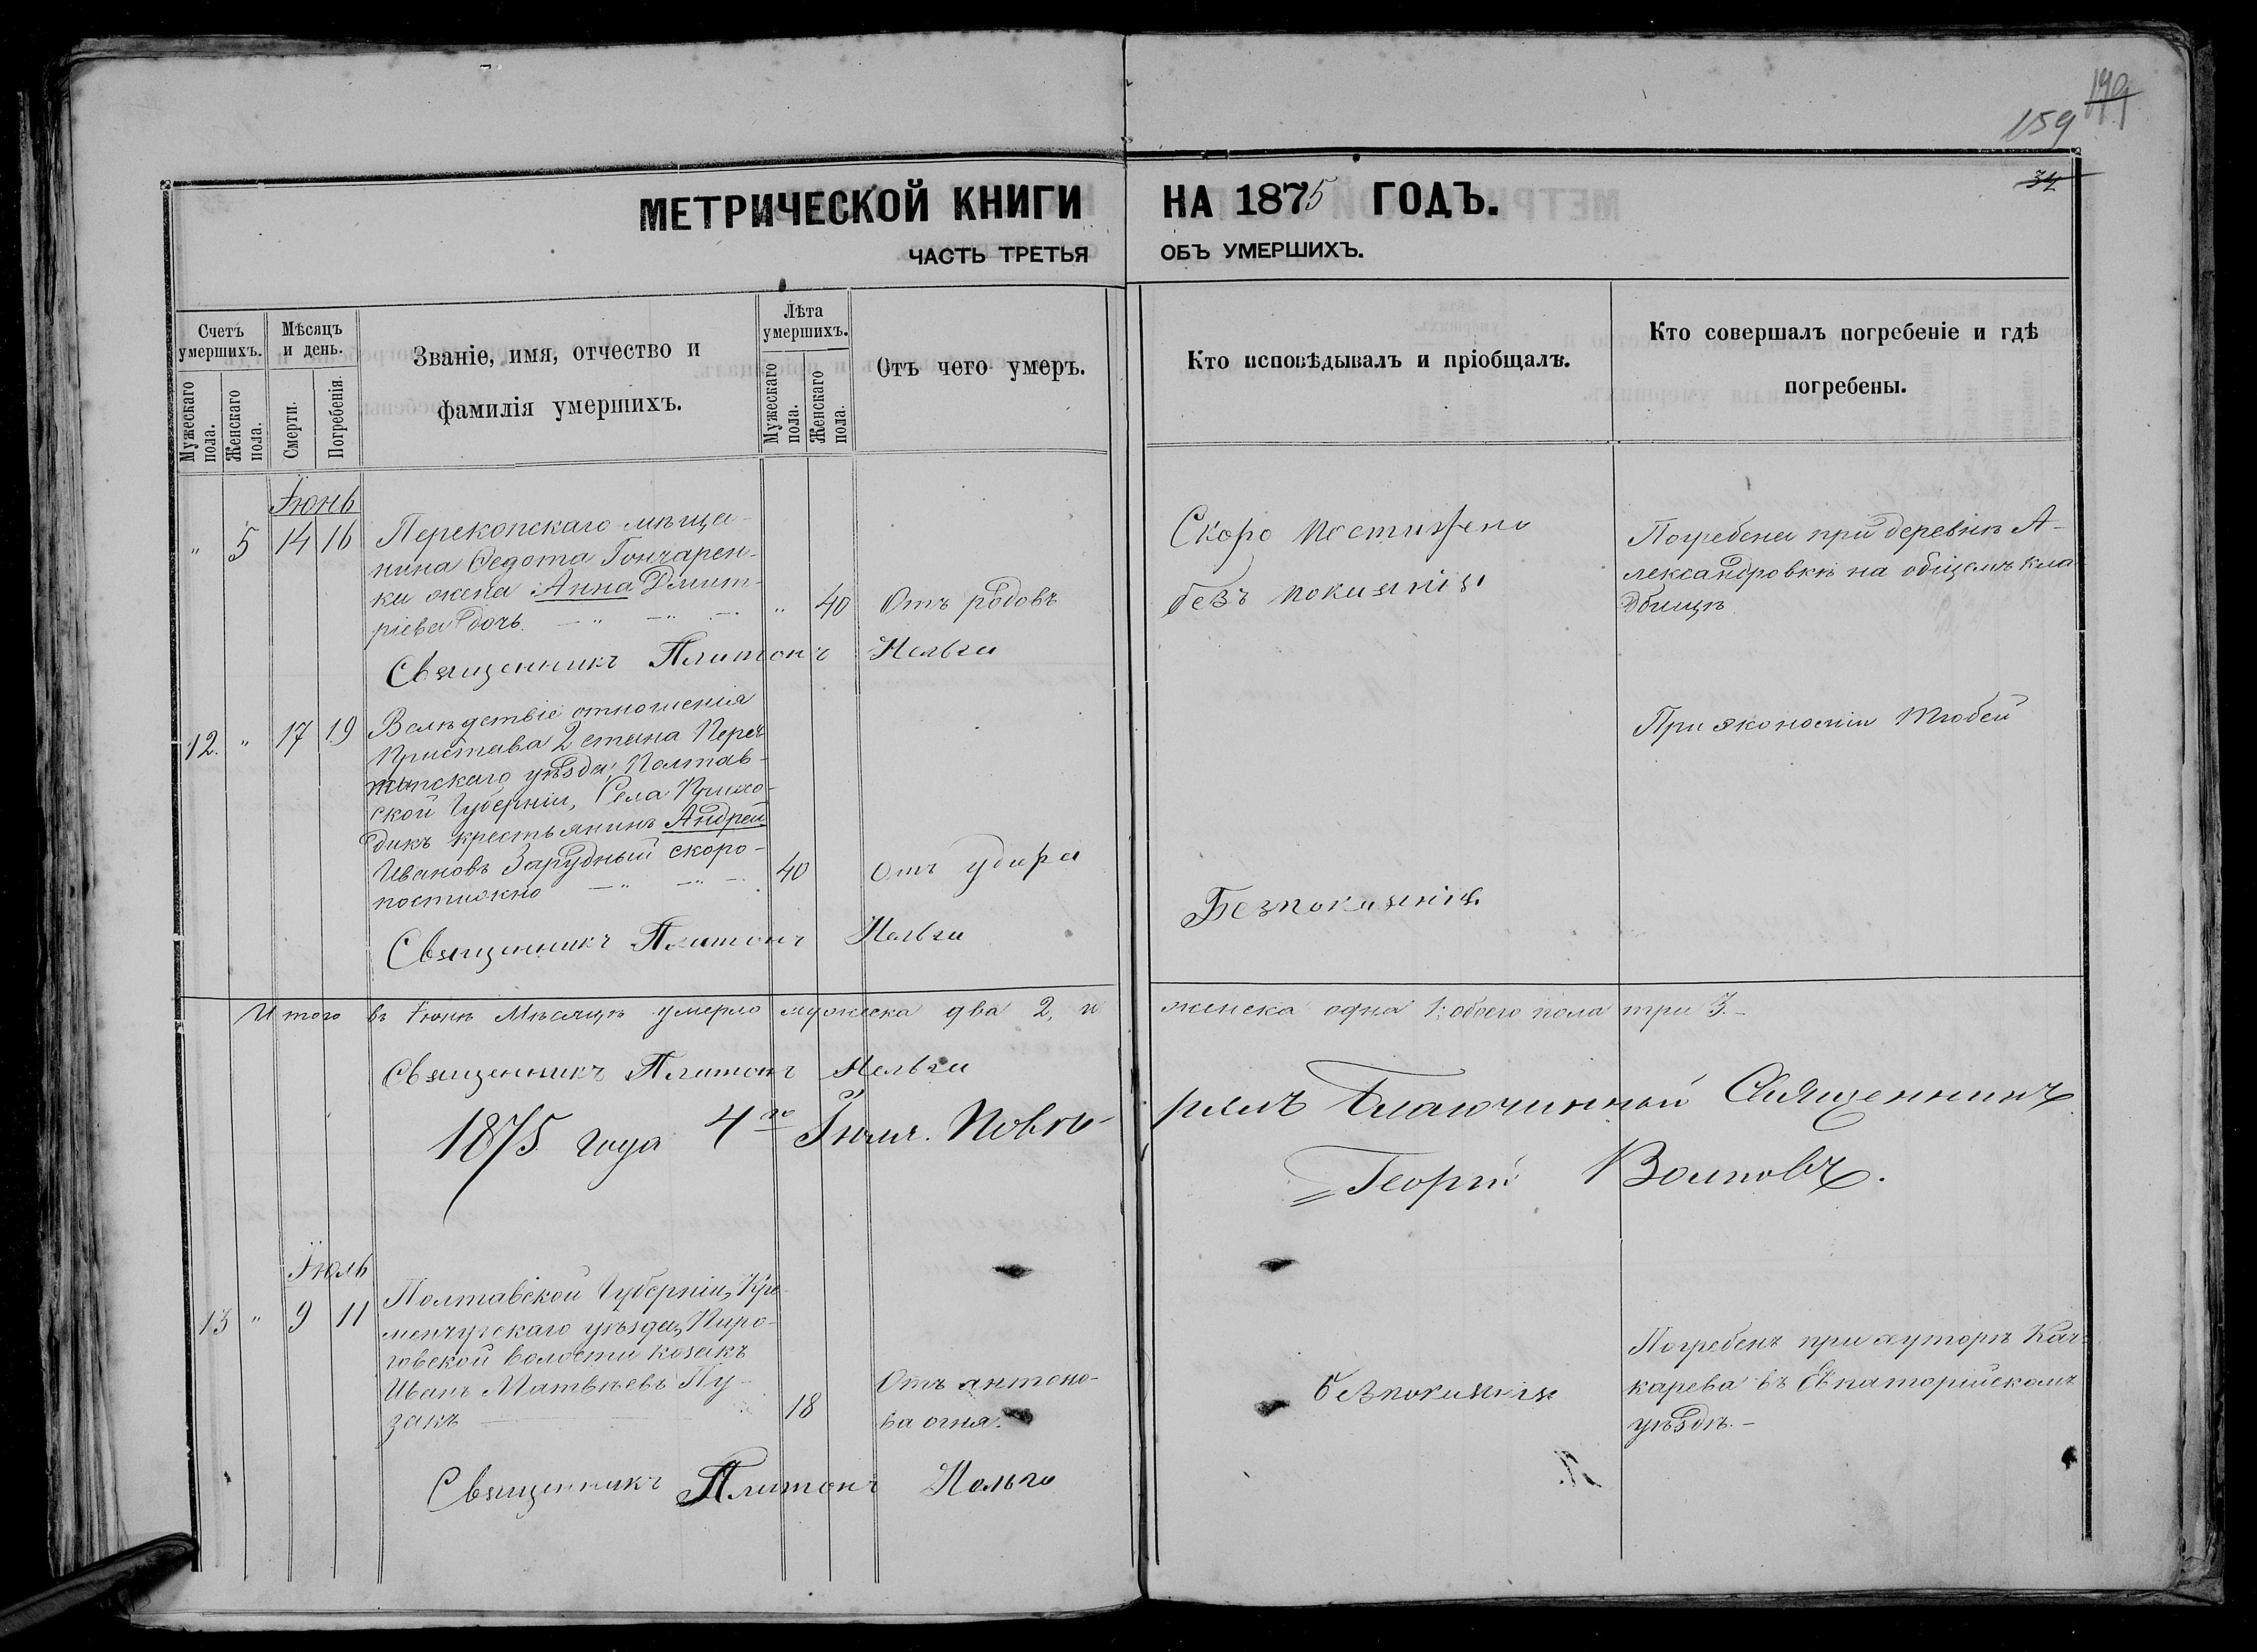 159 199
34
МЕТРИЧЕСКОЙ КНИГИ НА 1875 ГОДЪ.
ЧАСТЬ ТРЕТЬЯ ОБЪ УМЕРШИХЪ.
Счетъ умершихъ.
Мужескаго пола.
Женскаго пола.
Мѣсяцъ и день.
Смерти.
Погребенія.
Званіе, имя, отчество и
фамилія умершихъ.
Лѣта умершихъ.
Мужескаго пола.
Женскаго пола.
Отъ чего умеръ.
Кто исповѣдывалъ и пріобщалъ.
Кто совершалъ погребеніе и гдѣ
погребены.
Іюнь
" 5 14 16
Перекопскаго мѣща-
нина Федота Гончарен-
ки жена Анна Дмит-
ріева дочь.
" 40 Отъ родовъ
Скоро постижно
безъ покаянія
Погребена при деревнѣ А-
лександровкѣ на общемъ кла
дбищѣ
Священникъ Платонъ
12. " 17 19
Вслѣдствіе отношенія
Пристава 2 стана
уѣзда, Полтав-
ской Губерніи, Села
крестьянинъ Андрей
Ивановъ Зарудный скоро-
постижно
40 Отъ удара
Безпокаянія.
При экономіи Тюбей
Священникъ Платонъ
Итого въ Іюнѣ Мѣсяцѣ умерло мужеска два 2, и женска одна 1; обоего пола три 3.-
Священникъ Платонъ
1875 года 4го Іюля. Повѣ-
рялъ Благочинный Священникъ
Георгій Волковъ.
Іюль
13 " 9 11
Полтавской Губерніи, Кре-
менчугскаго уѣзда,
волости козакъ
Иванъ Матвѣевъ Пу-
закъ
18
Отъ антоно-
ва огня.
безпокаянія
Погребенъ при хуторѣ Кач-
карева въ Евпаторійскомъ
уѣздѣ.-
Священникъ Платонъ